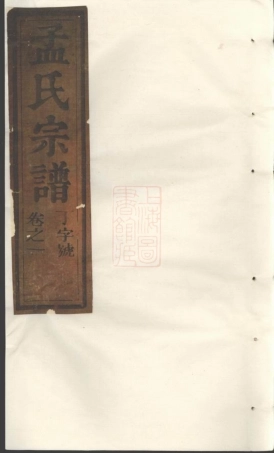 孟氏宗譜
丁字號
卷之一
上海圖
書館藏